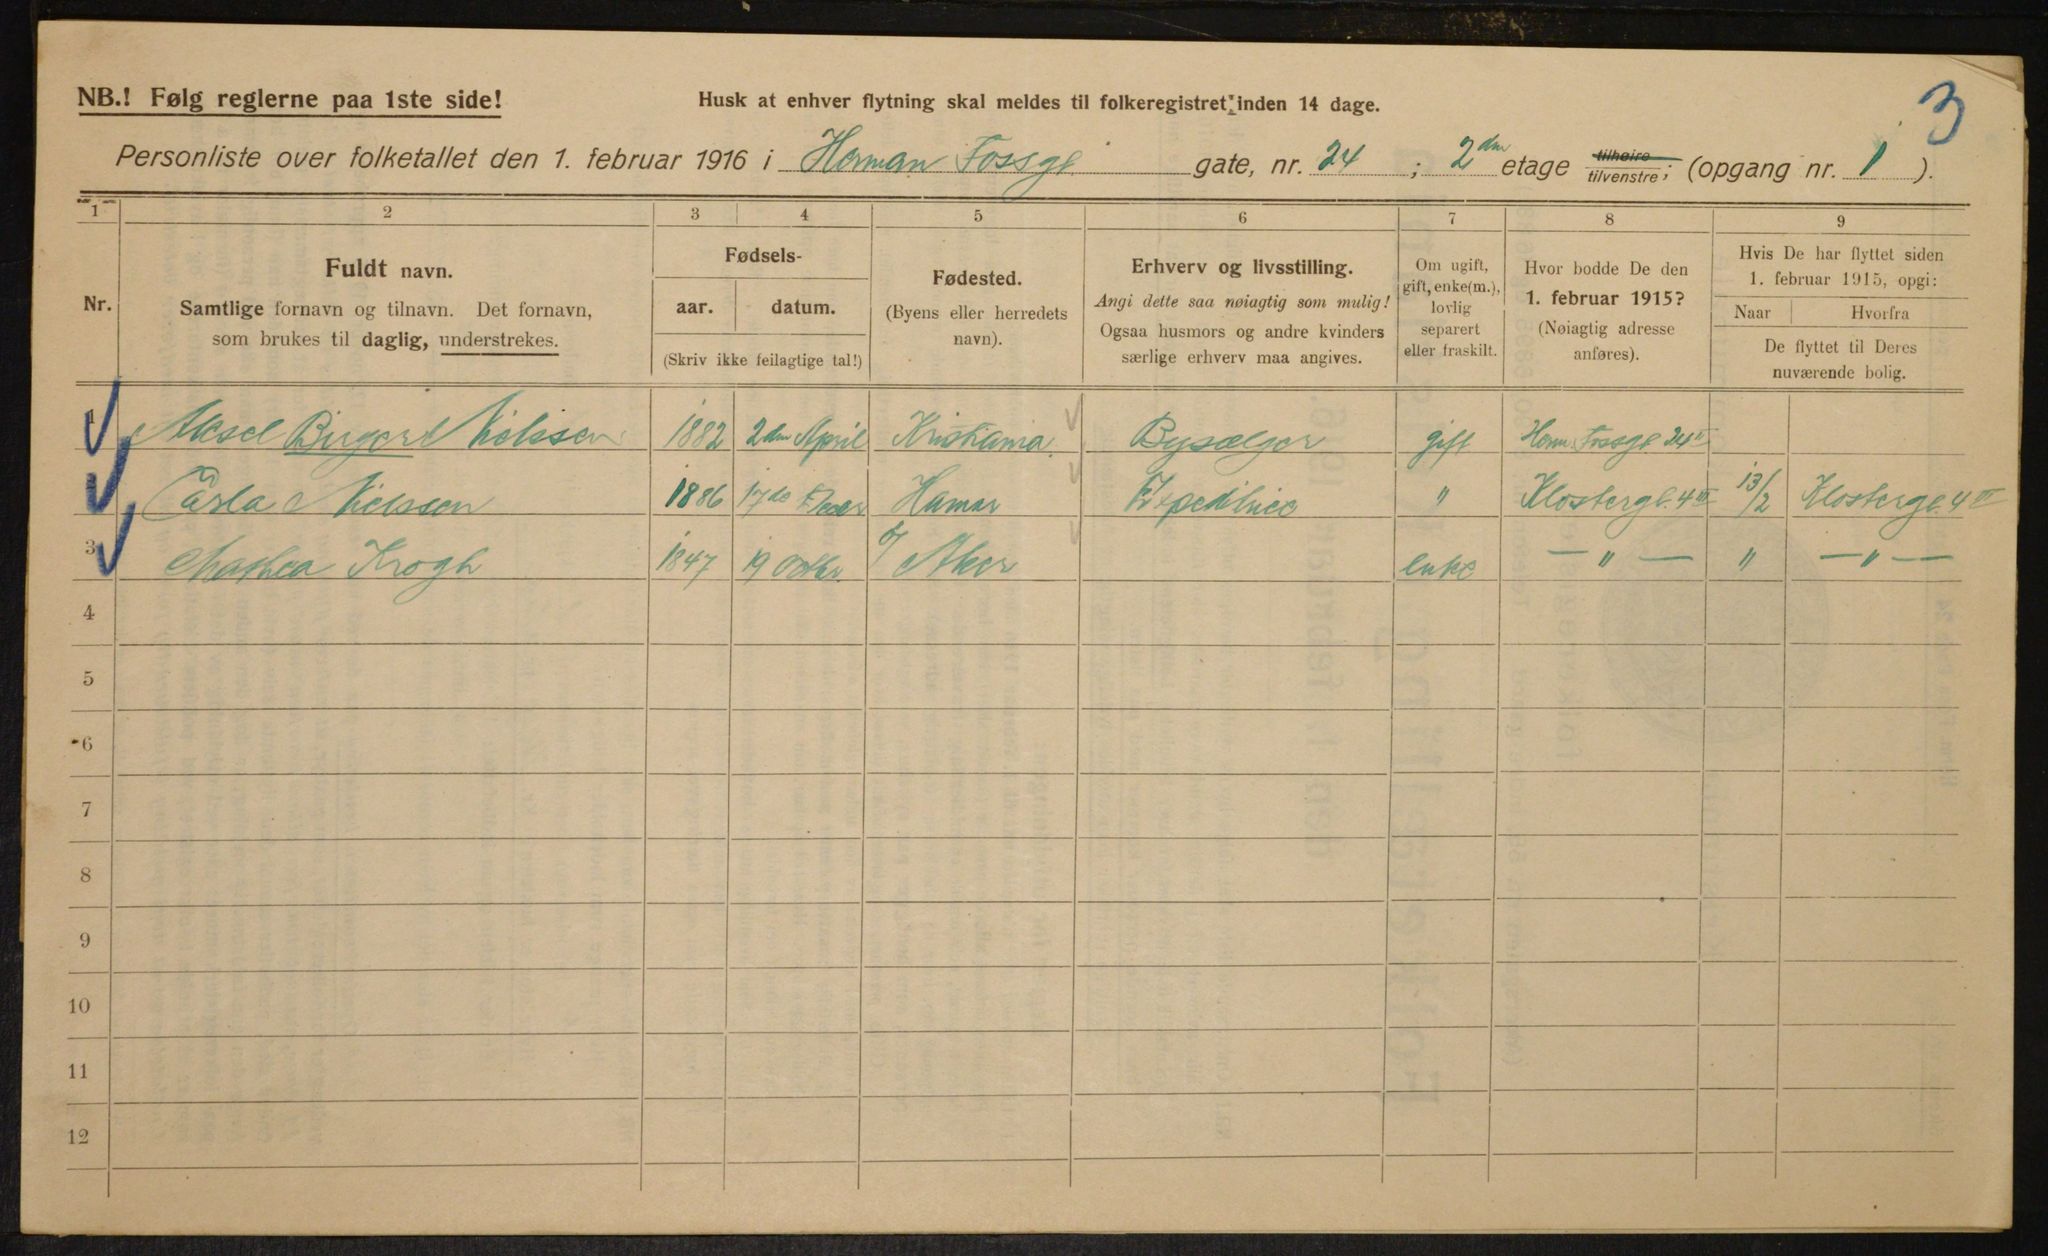 3
NB.! Følg reglerne paa 1ste side!
Husk at enhver flytning skal meldes til folkeregistret inden 14 dage.
Personliste over folketallet den 1. februar 1916 i Herman Fossgt gate, nr. 24; 2den etage tilhøire/tilvenstre; (opgang nr. 1).
1 2 3 4 5 6 7 8 9
Nr.
Fuldt navn.
Samtlige fornavn og tilnavn. Det fornavn,
som brukes til daglig, understrekes.
Fødsels-
aar. datum.
(Skriv ikke feilagtige tal!)
Fødested.
(Byens eller herredets
navn).
Erhverv og livsstilling.
Angi dette saa nøiagtig som mulig!
Ogsaa husmors og andre kvinders
særlige erhverv maa angives.
Om ugift,
gift, enke(m.),
lovlig
separert
eller fraskilt.
Hvor bodde De den
1. februar 1915?
(Nøiagtig adresse
anføres).
Hvis De har flyttet siden
1. februar 1915, opgi:
Naar Hvorfra
De flyttet til Deres
nuværende bolig.
1 Aksel Birger Nielssen 1882 2den April Kristiania. Bysælger gift Herm. Fossgt 24 II
2 Nielssen 1886 17de Hamar Expeditrice " Klostergt. 4 III 13/2 Klostergt. 4 III
3 Mathea Krogh 1847 19 Oktbr. Aker enke — " — " — " —
4
5
6
7
8
9
10
11
12